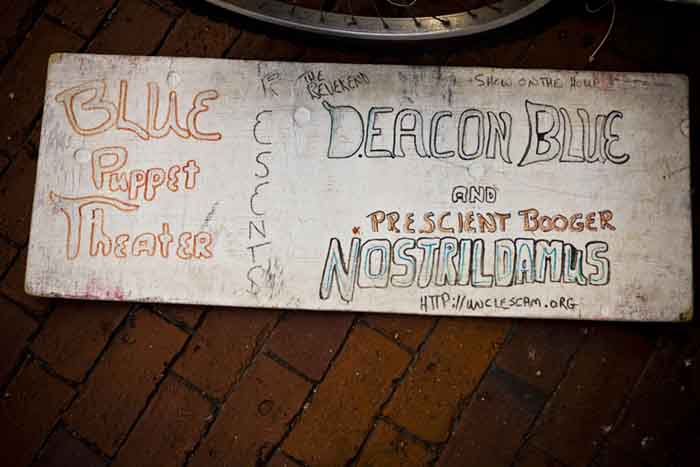 BLUE
PUPPET
THEATER
PRESENTS
THE
REVEREND
SHOW ON THE HOUR
DEACON BLUE
AND
PRESCIENT BOOGER
NOSTRILDAMUS
HTTP://UNCLESCAM.ORG